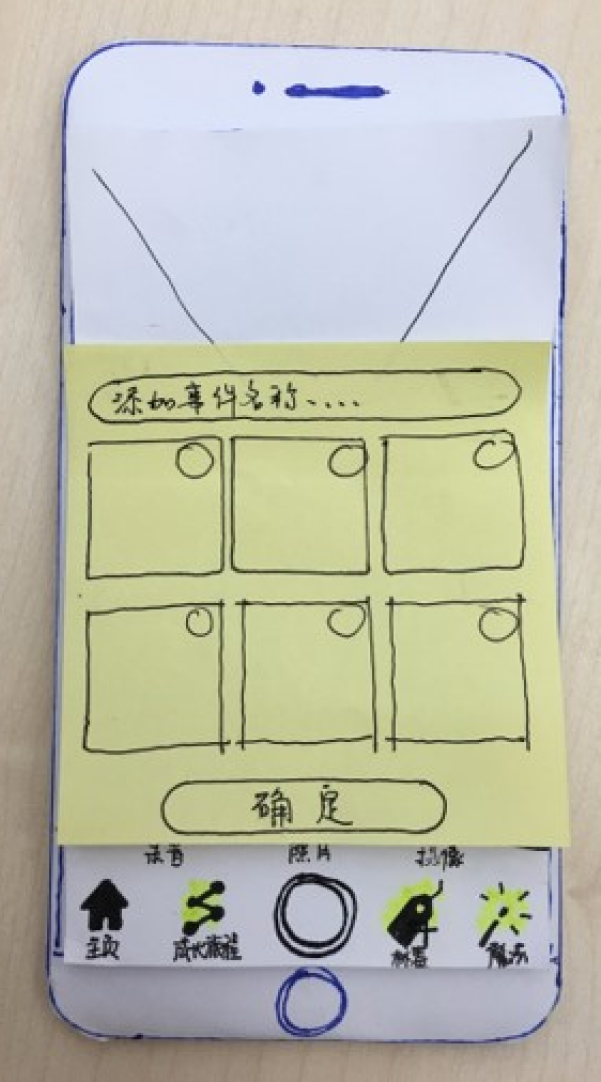 添加事件名称、、、、
确定
录音 照片 摄像
主页 成长旅程 标签 魔法